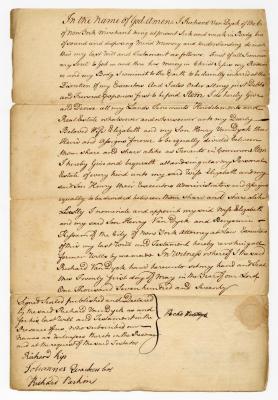 In the Name of God Amen I Richard Van Dyck of the
of New York Merchant being at present Sick and weak in Body but
of sound and disposing Mind Memory and Understanding do make
this my last Will and Testament as follows First of all I commit
my Soul to God in and thro his mercy in Christ Jesus my Redeemer
and my Body I commit to the Earth to be decently interred at the
Direction of my Executors And I order all my just Debts
and Funeral Expences paid
and Devise all my Lands Tenements Hereditaments and
Real Estate whatsoever and wheresoever unto my Dearly
Beloved Wife Elizabeth and my Son Henry Van Dyck their
Heirs and Assigns forever to be equally divided between
them share and share alike as Tenants in Common
I hereby Give and bequeath all and singular my Personal
Estate of every kind unto my said Wife Elizabeth and my
said Son Henry their Executors Administrators and Assigns
equally to be divided between them Share and Share alike
Lastly I nominate and appoint my said Wife Elizabeth
and my said Son Henry Van Dyck and Benjamin
of the City of New York Attorney at Law Executors
of this my last Will and Testament hereby revoking all
former Wills by me made In Witness whereof I the said
Richard Van Dyck have hereunto set my hand and Seal
this Twenty first day of May in the Year of our Lord
One Thousand Seven hundred and Seventy
Signed Sealed published and Declared
by the said Richard Van Dyck as and
for his last Will and Testament in the
Presence of us who subscribed our
Names as witnesses thereto in the Presence
and at the request of the said Testator
Richard Kip
Johannes
Richard